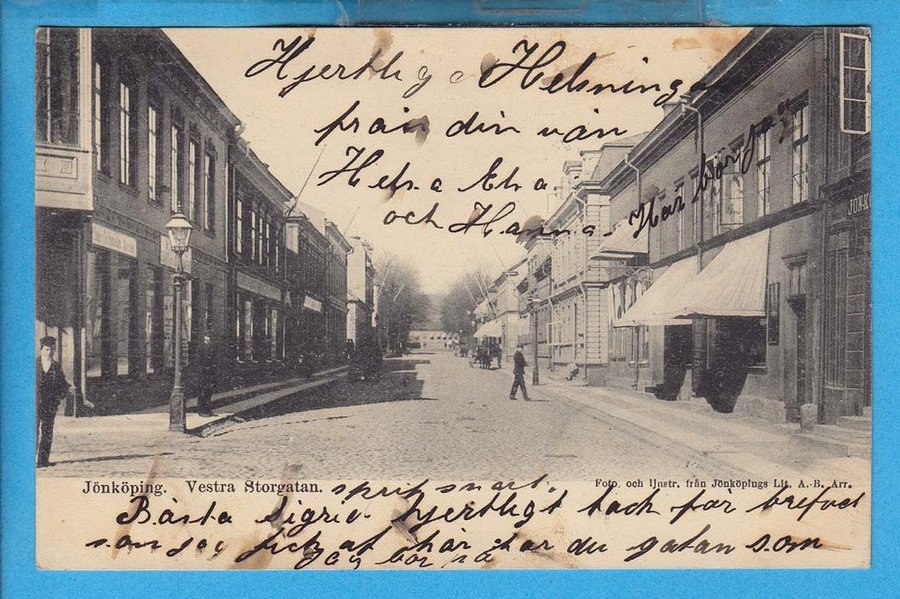 Hjertlige Helsninge
från din vän
Helsa Elsa
och Hanna.
Här bor jag
JÖNK
Jönköping. Vestra Storgatan.
Foto. och ljustr. från Jönköpings Lit. A.-B. Arr.
skrif snart.
Bästa Sigrid. hjertligt tack för brefvet
som jag fick af här har du gatan som
jag bor på